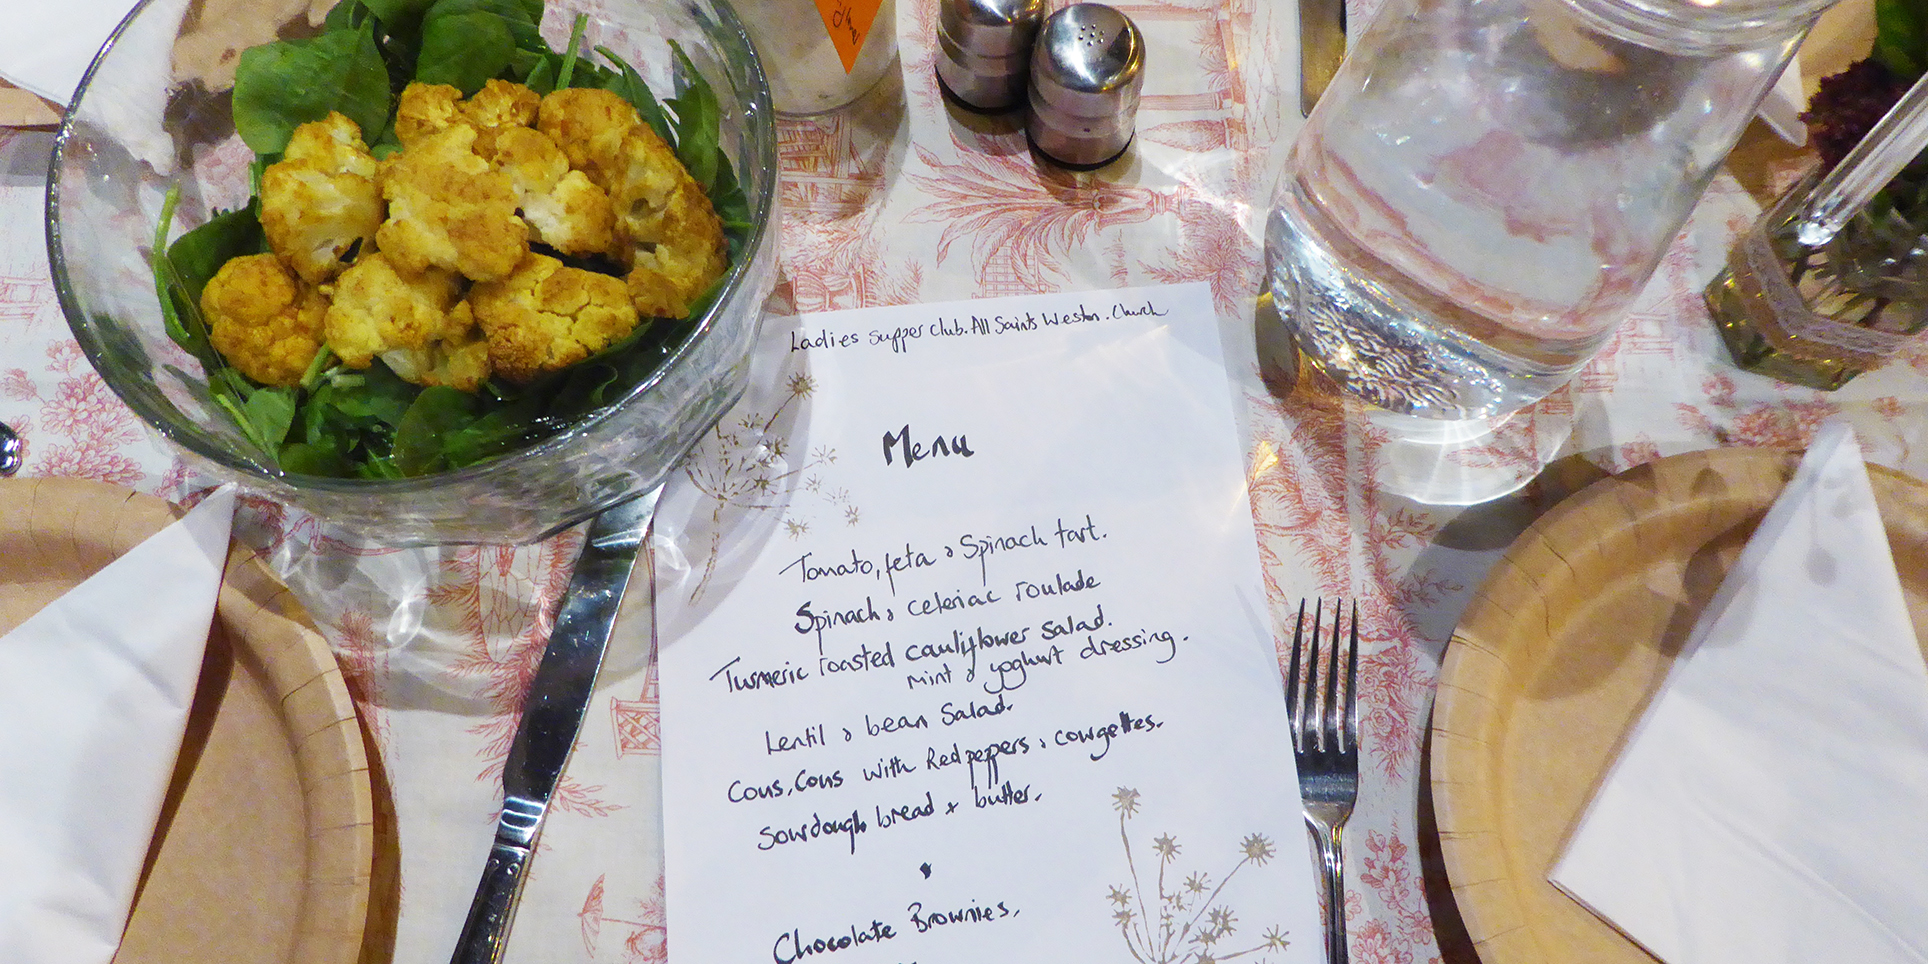 Ladies Supper Club. All Saints Weston. Church
Menu
Tomato, feta & Spinach tart.
Spinach & celeriac roulade
Turmeric roasted cauliflower salad.
mint & yoghurt dressing.
Lentil & bean Salad.
Cous, Cous with Red peppers & courgettes.
Sourdough bread + butter.
Chocolate Brownies.